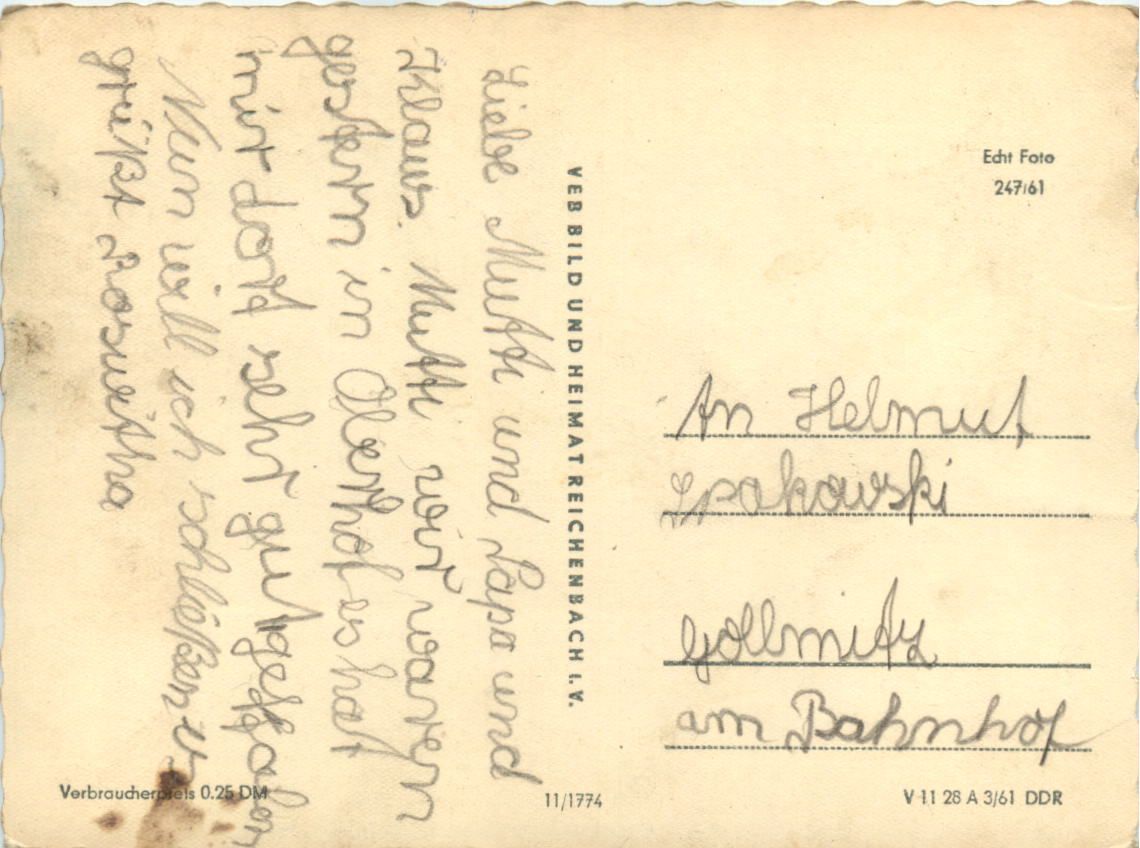 Liebe Mutti und Papa und
Klaus. Mutti wir waren
gestern in Oberhof es hat
mir dort sehr gut gefallen
Nun will ich schlißen u
grüßt Roswitha
VEB BILD UND HEIMAT REICHENBACH I. V.
Echt Foto
247/61
An Helmut
Gollmitz
am Bahnhof
Verbraucherpreis 0.25 DM
11/1774
V 11 28 A 3/61 DDR